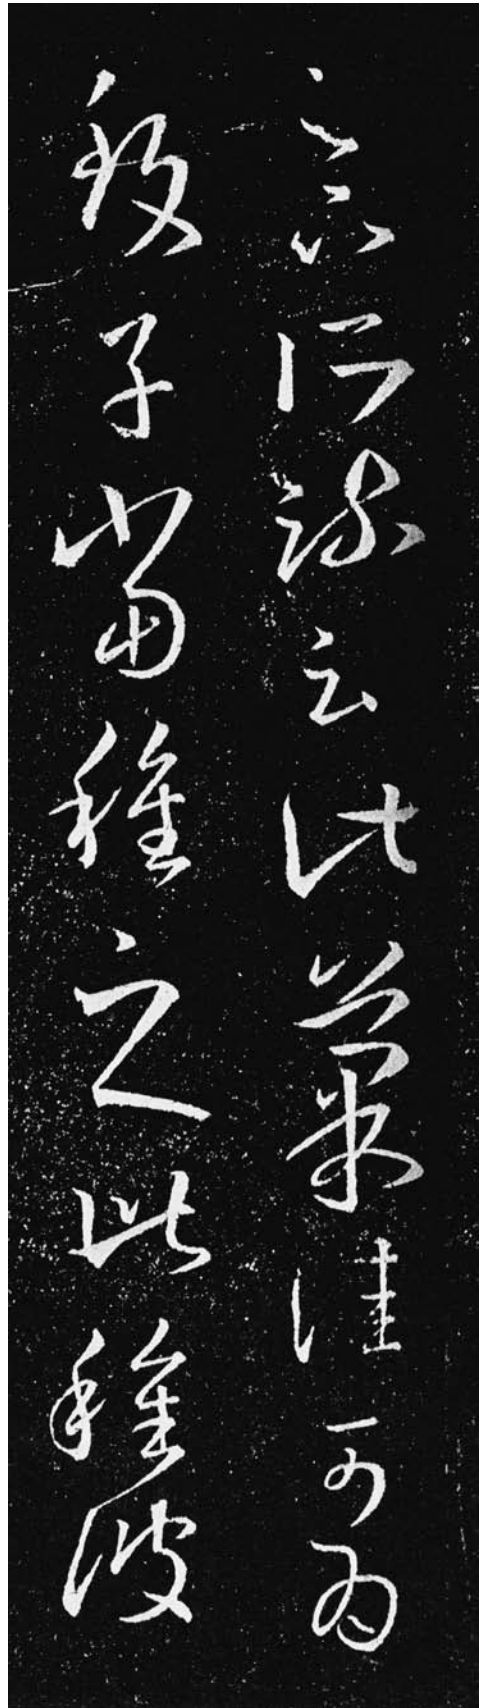 足下所疏云此菓佳可為
致子當種之此種彼